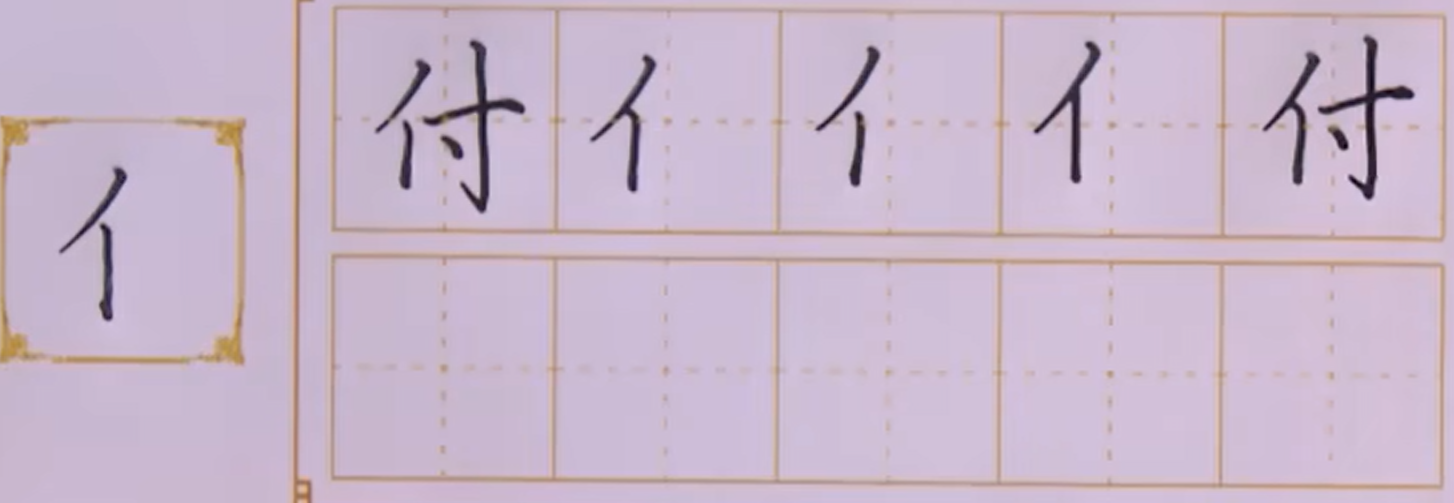 亻
付亻亻亻付